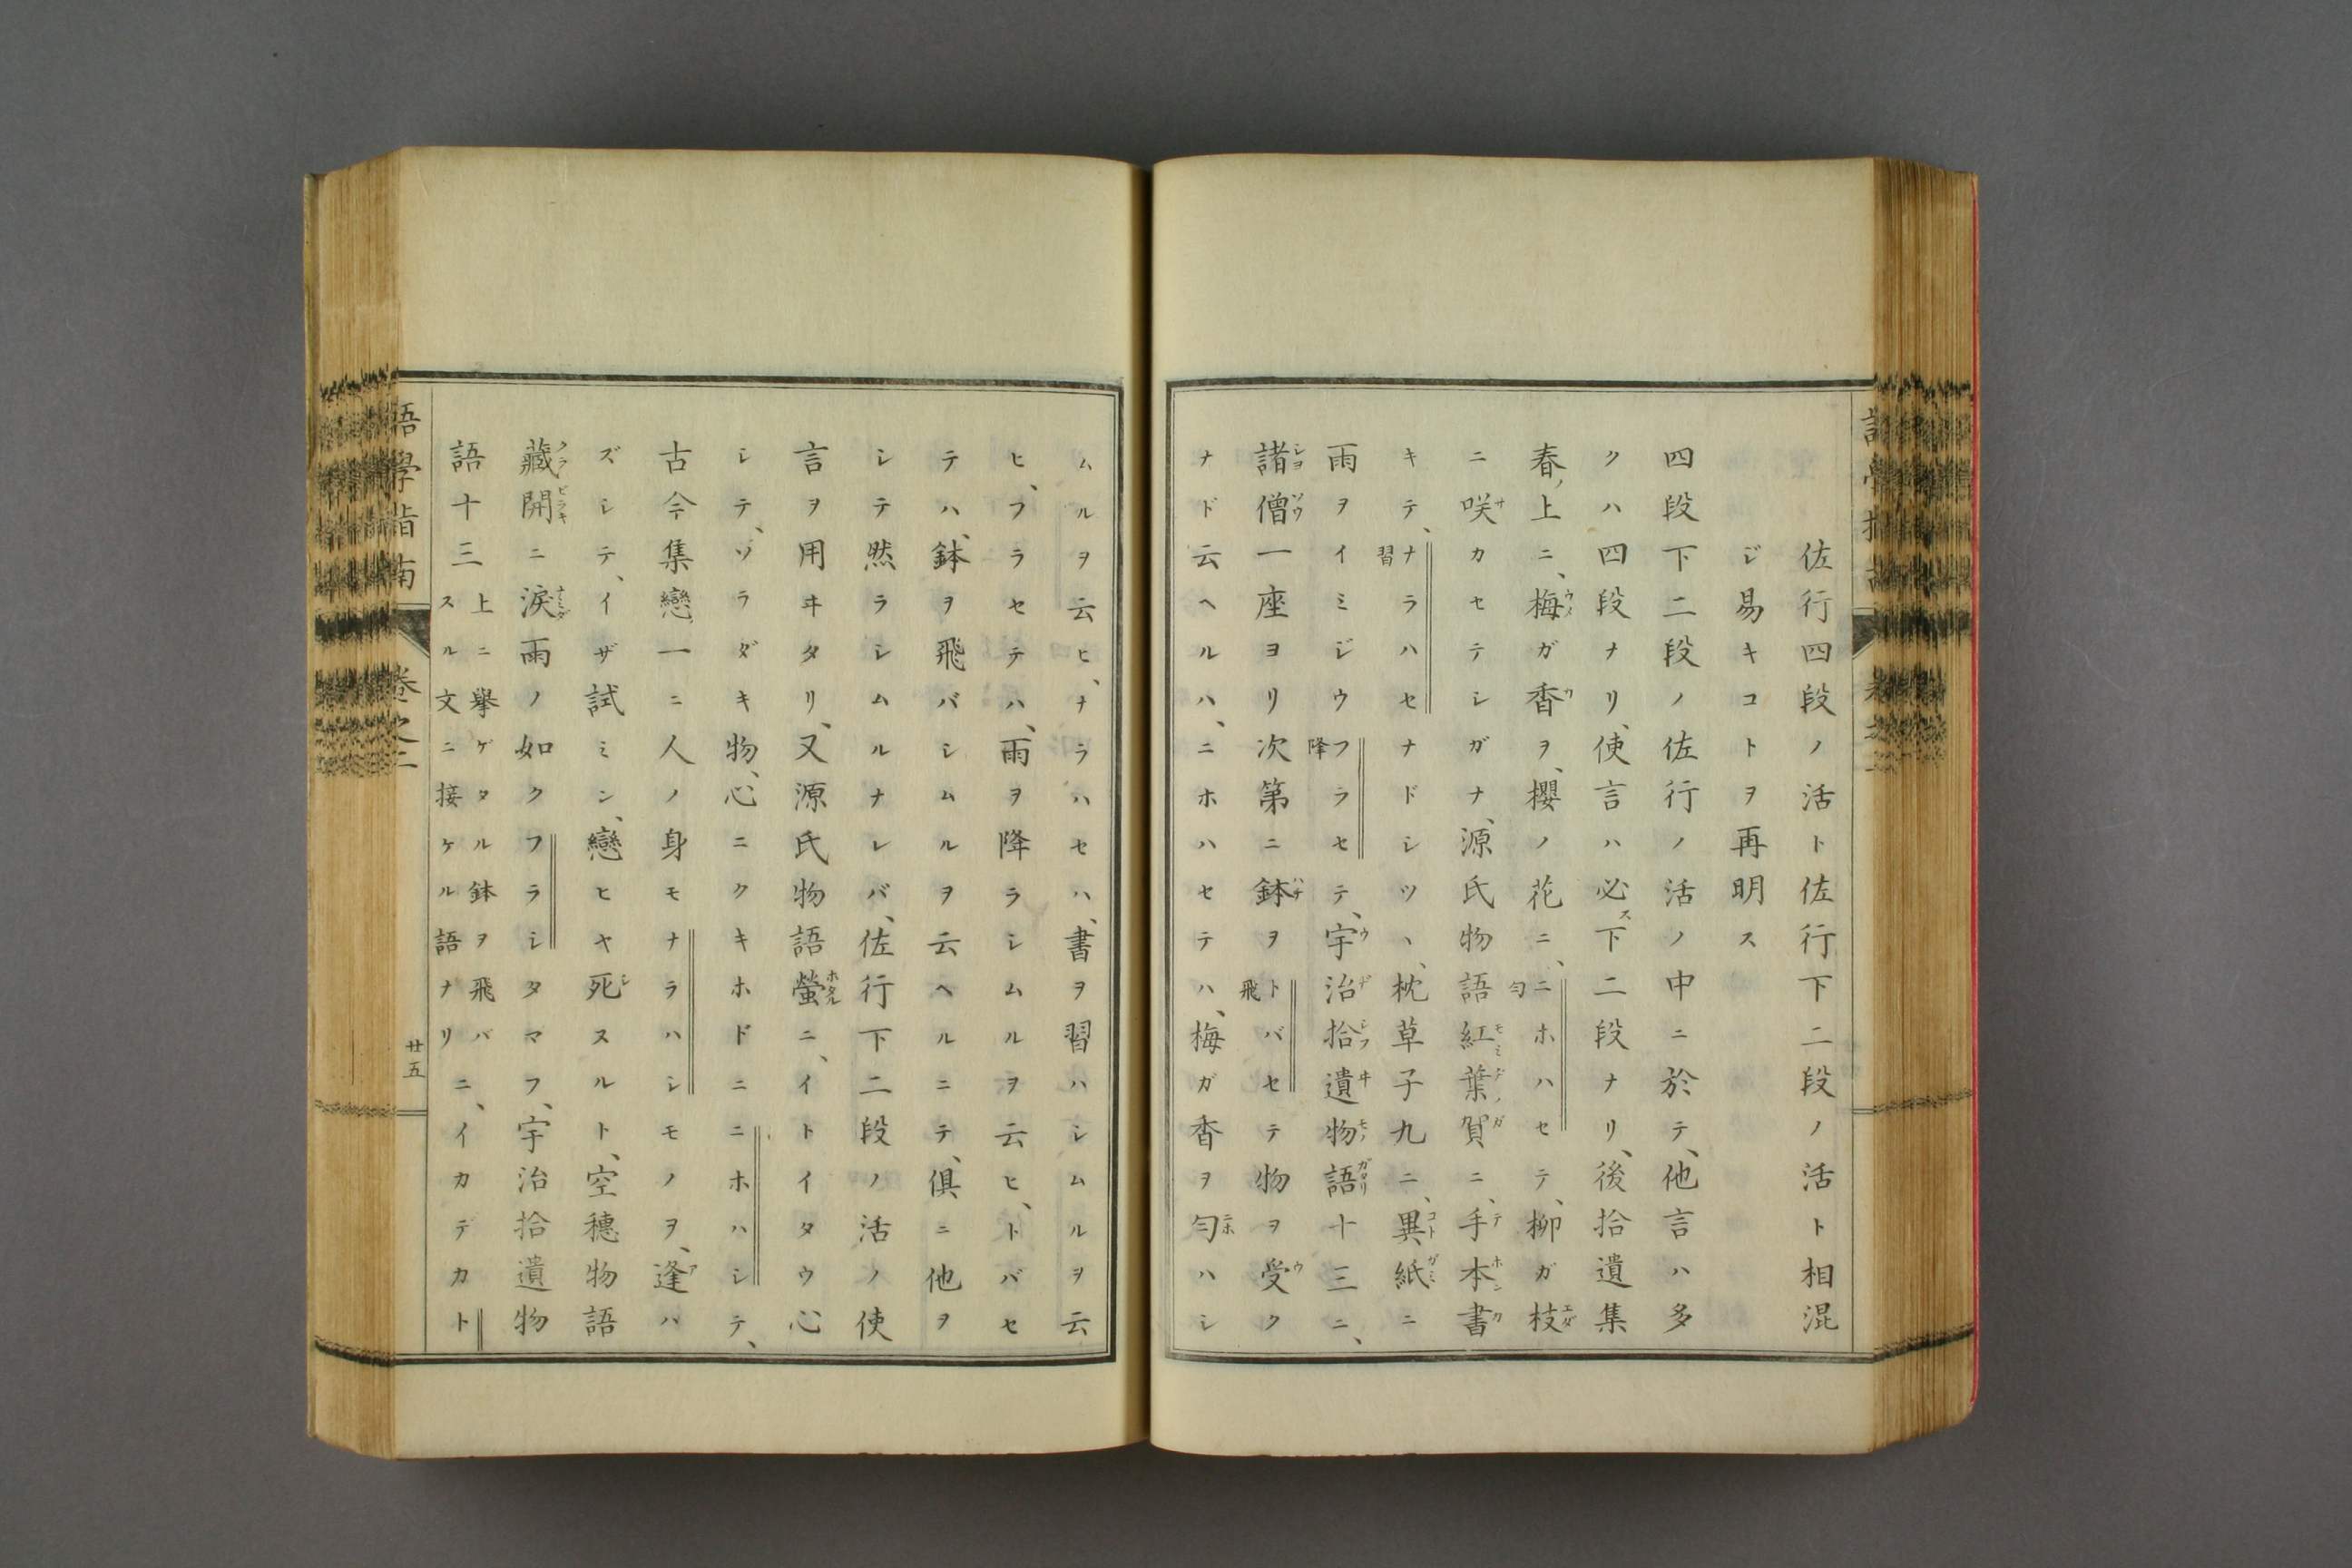 佐行四段ノ活ト佐行下二段ノ活ト相混
ジ易キコトヲ再明ス
四段下二段ノ佐行ノ活ノ中ニ於テ、他言ハ多
クハ四段ナリ、使言ハ必ス下二段ナリ、後拾遺集
春ノ上ニ、梅ガ香ヲ、櫻ノ花ニ、ニホハセテ、柳ガ枝
ニ咲カセテシガナ、源氏物語紅葉賀ニ、手本書
キテ、ナラハセナドシツヽ、枕草子九ニ、異紙ニ
雨ヲイミジウフラセテ、宇治拾遺物語十三ニ、
諸僧一座ヨリ次第ニ鉢ヲトバセテ物ヲ受ク
ナド云ヘルハ、ニホハセテハ、梅ガ香ヲ匂ハシ
ムルヲ云ヒ、ナラハセハ、書ヲ習ハシムルヲ云
ヒ、フラセテハ、雨ヲ降ラシムルヲ云ヒ、トバセ
テハ、鉢ヲ飛バシムルヲ云ヘルニテ、倶ニ他ヲ
シテ然ラシムルナレバ、佐行下二段ノ活ノ使
言ヲ用ヰタリ、又源氏物語螢ニ、イトイタウ心
シテ、ソラダキ物、心ニクキホドニニホハシテ、
古今集戀一ニ人ノ身モナラハシモノヲ、逢ハ
ズシテ、イザ試ミン、戀ヒヤ死スルト、空穗物語
藏開ニ涙雨ノ如クフラシタマフ、宇治拾遺物
語十三上ニ擧ゲタル鉢ヲ飛バスル文ニ接ケル語ナリニ、イカデカト
語學指南
卷之二
廿五